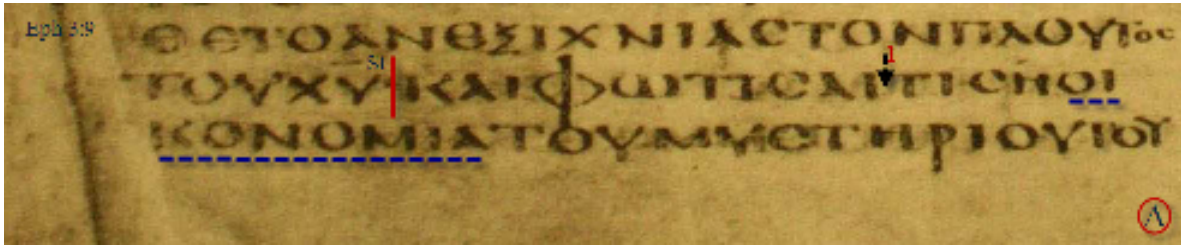 Eph 3:9
ΘΕΤΟΑΝΕΞΙΧΝΙΑϹΤΟΝΠΛΟΥΤΟϹ
1
ΤΟΥΧΥΚΑΙΦΩΤΙϹΑΙΤΙϹΗΟΙ
ΚΟΝΟΜΙΑΤΟΥΜΥϹΤΗΡΙΟΥΤΟΥ
A